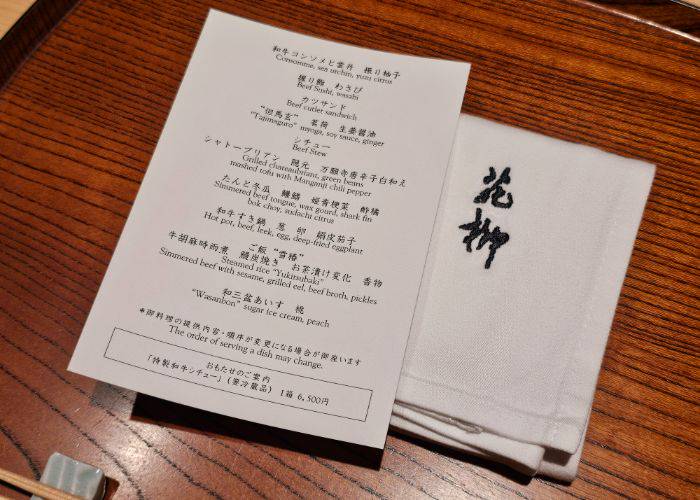 和牛コンソメと雲丹　振り柚子
Consomme, sea urchin, yuzu citrus
握り鮨　わさび
Beef Sushi, wasabi
カツサンド
Beef cutlet sandwich
“但馬玄”　茗荷　生姜醤油
“Tajimaguro” myoga, soy sauce, ginger
シチュー
Beef Stew
シャトーブリアン　隠元　万願寺唐辛子白和え
Grilled chateaubriant, green beans
mashed tofu with Manganji chili pepper
たんと冬瓜　鱶鰭　姫青梗菜　酢橘
Simmered beef tongue, wax gourd, shark fin
bok choy, sudachi citrus
和牛すき鍋　葱　卵　絹皮茄子
Hot pot, beef, leek, egg, deep-fried eggplant
ご飯 “雪椿”
牛胡麻時雨煮　鰻炭焼き　お茶漬け変化　香物
Steamed rice “Yukitsubaki”
Simmered beef with sesame, grilled eel, beef broth, pickles
和三盆あいす　桃
“Wasanbon” sugar ice cream, peach
*御料理の提供内容・順序が変更になる場合が御座います
The order of serving a dish may change.
おもたせのご案内
「特製和牛シチュー」(要冷蔵品)　1箱 6,500円
花柳